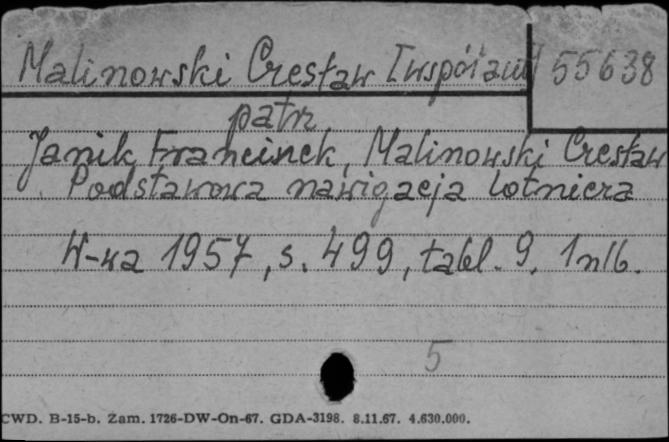 Malinowski Czesław [współaut]
55638
patrz
Janik Franciszek, Malinowski Czesław
Podstawowa nawigacja lotnicza
W-wa 1957, s. 499, tabl. 9, 1 nlb.
5
CWD. B-15-b. Zam. 1726-DW-On-67. GDA-3198. 8.11.67. 4.630.000.